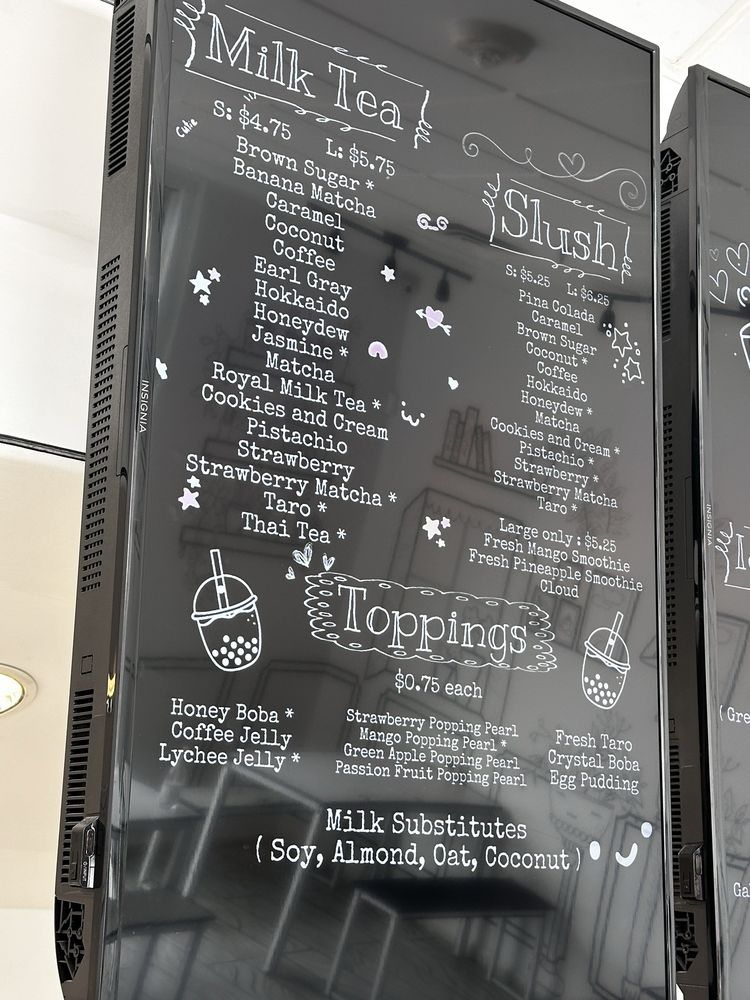 Milk Tea
S: $4.75 L: $5.75
Cutie
Brown Sugar *
Banana Matcha
Caramel
Coconut
Coffee
Earl Gray
Hokkaido
Honeydew
Jasmine *
Matcha
Royal Milk Tea *
Cookies and Cream
Pistachio
Strawberry
Strawberry Matcha *
Taro *
Thai Tea *
Slush
S: $5.25 L: $6.25
Pina Colada
Caramel
Brown Sugar
Coconut *
Coffee
Hokkaido
Honeydew *
Matcha
Cookies and Cream *
Pistachio *
Strawberry *
Strawberry Matcha
Taro *
Large only : $5.25
Fresh Mango Smoothie
Fresh Pineapple Smoothie
Cloud
Toppings
$0.75 each
Honey Boba *
Coffee Jelly
Lychee Jelly *
Strawberry Popping Pearl
Mango Popping Pearl *
Green Apple Popping Pearl
Passion Fruit Popping Pearl
Fresh Taro
Crystal Boba
Egg Pudding
Milk Substitutes
( Soy, Almond, Oat, Coconut )
INSIGNIA
INSIGNIA